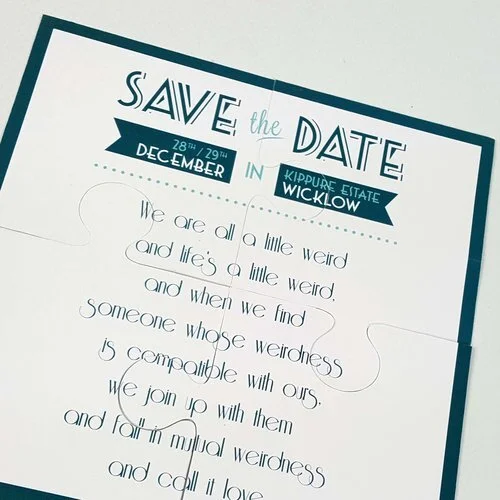 SAVE the DATE
28TH / 29TH DECEMBER IN KIPPURE ESTATE WICKLOW
We are all a little weird
and life's a little weird,
and when we find
someone whose weirdness
is compatible with ours,
we join up with them
and fall in mutual weirdness
and call it love